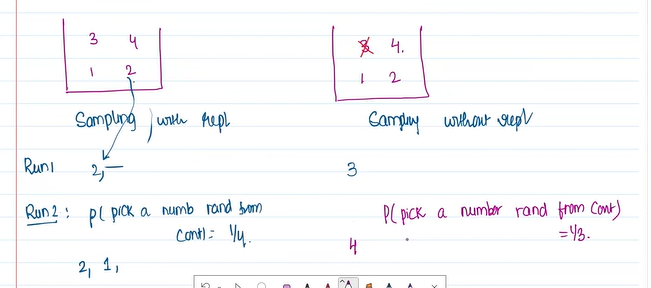 3 4
1 2
Sampling with repl
Run1 2, —
Run2 : P( pick a numb rand from
cont) = 1/4.
2, 1,
3 4.
1 2
Sampling without repl
3
P( pick a number rand from cont)
= 1/3.
4